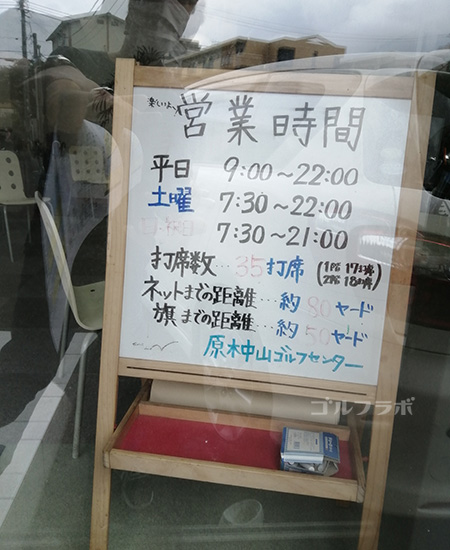 楽しいよ〜
営業時間
平日 9:00〜22:00
土曜 7:30〜22:00
日・祝日 7:30〜21:00
打席数…35打席 (1階 17打席 2階 18打席)
ネットまでの距離…約80ヤード
旗までの距離…約50ヤード
原木中山ゴルフセンター
ゴルフラボ